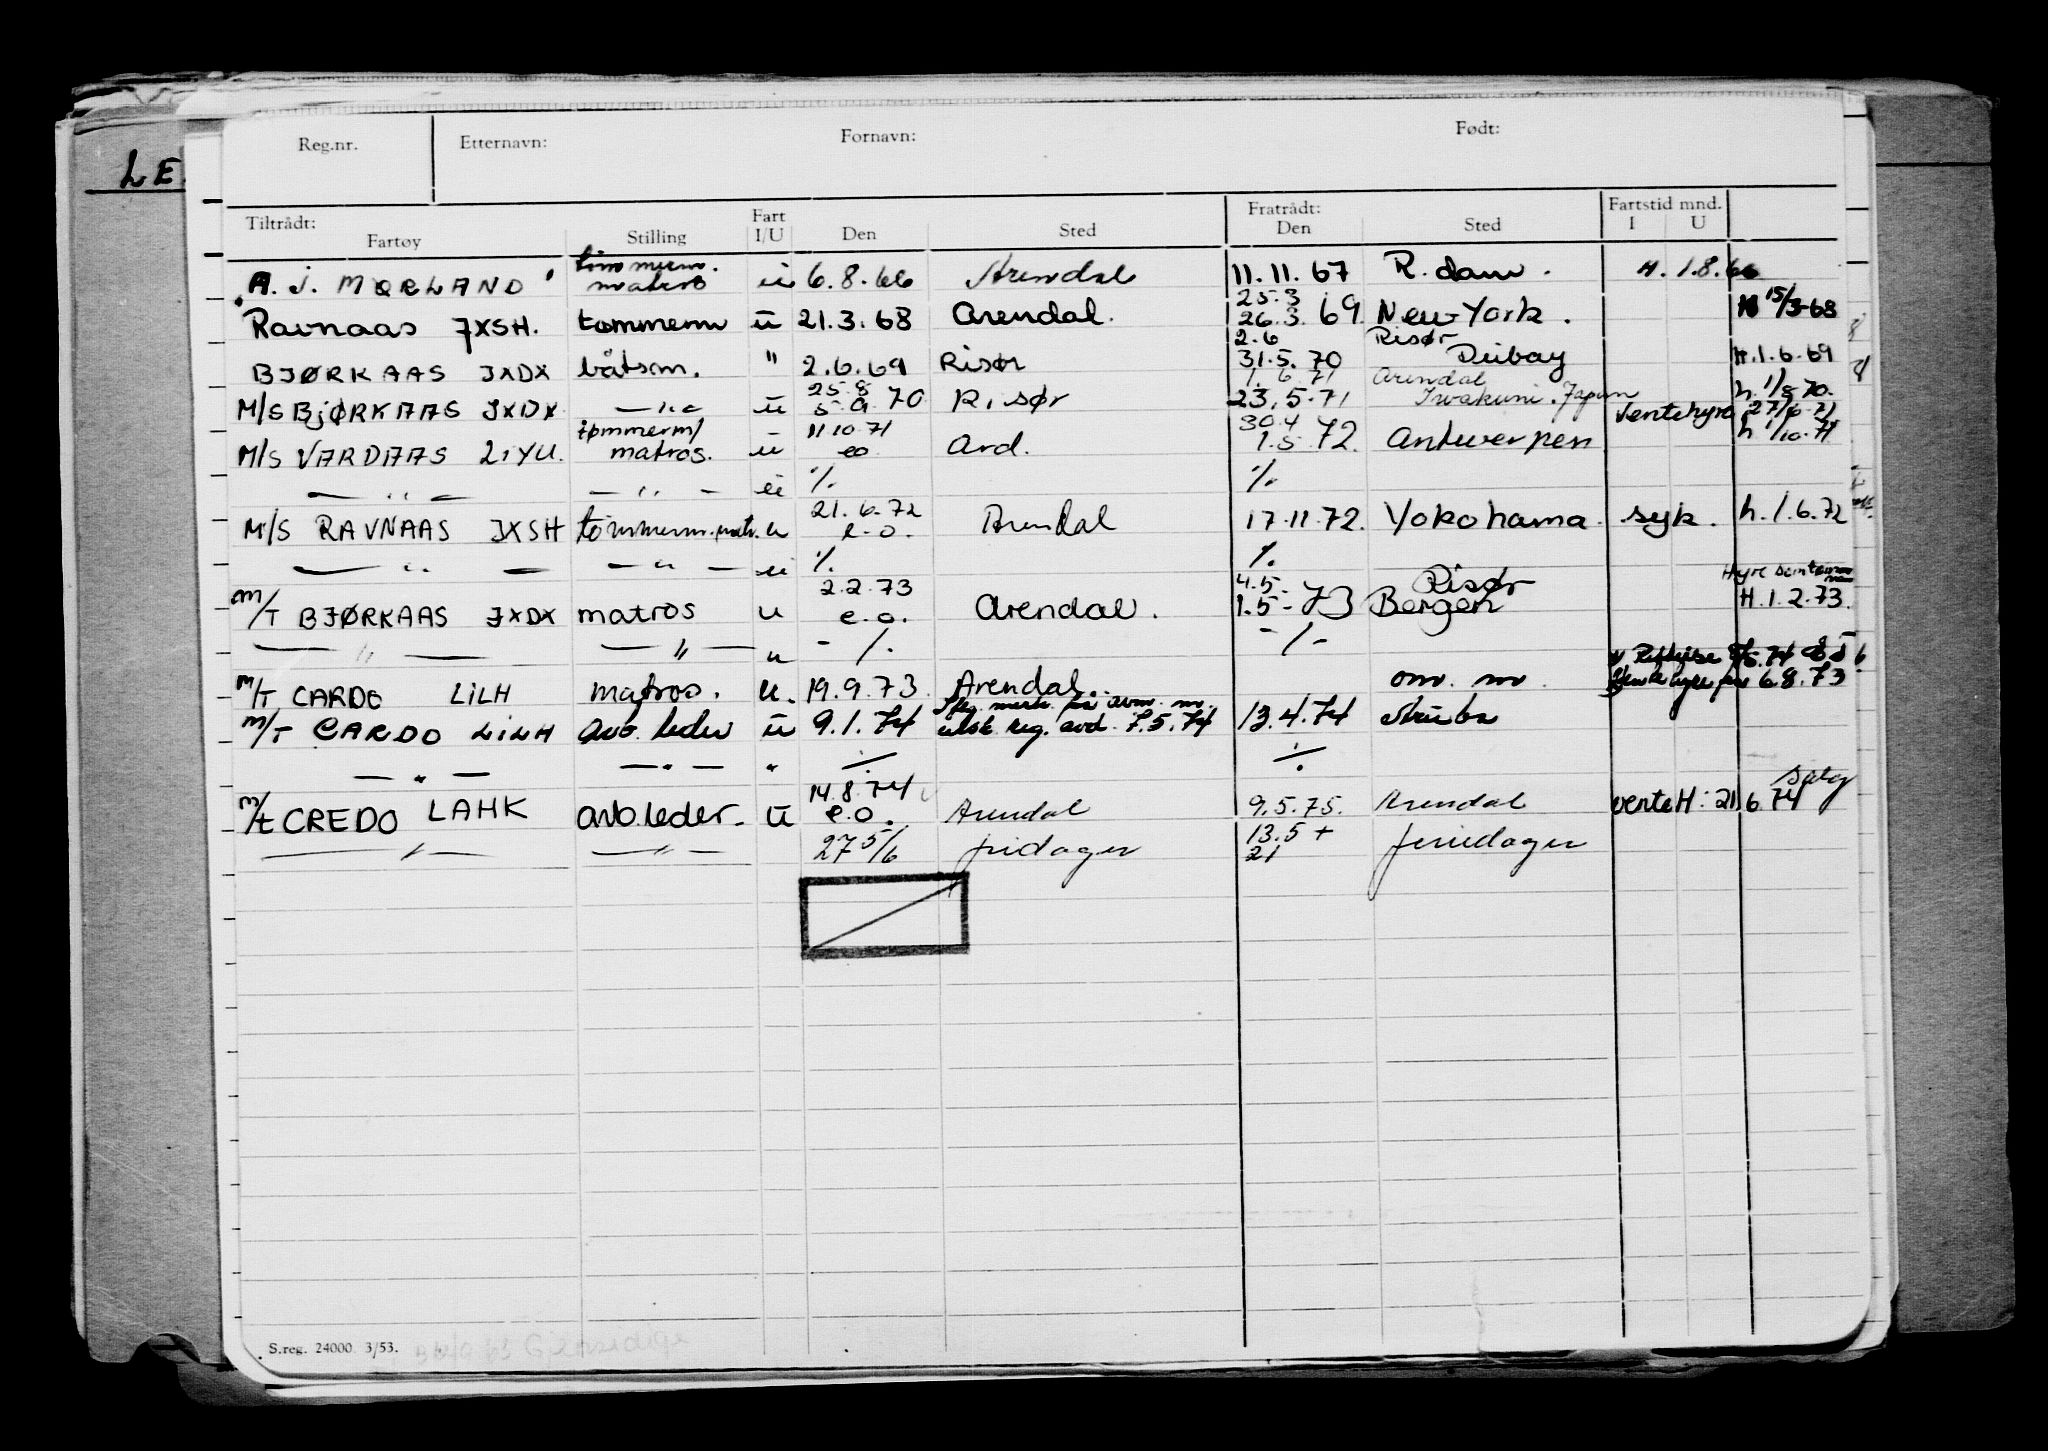 LE
Reg.nr. Etternavn: Fornavn: Født:
Tiltrådt: Fartøy Stilling Fart I/U Den Sted Fratrådt: Den Sted Fartstid mnd. I U
"A. J. MØRLAND" tømmerm. matros u 6.8.66 Arendal 11.11.67 R.dam. H. 1.8.66
25.3
Ravnaas JXSH. tømmerm u 21.3.68 Arendal. 26.3.69 New York. H 15/3-68
2.6 Risør
BJØRKAAS JXDX båtsm. " 2.6.69 Risør 31.5.70 Dubay H.1.6.69
25.8 1.6.71 Arendal
M/S BJØRKAAS JXDX —"— u 5.9.70 Risør 23.5.71 Iwakuni. Japan h. 1/8 70.
tømmerm/ 11.10.71 30.4 Ventehyre 27/6.71
M/S VARDAAS LIYU. matros. u eo Ard. 1.5.72. Antwerpen h 1/10.71
— " — — " — u ./. ./.
21.6.72
M/S RAVNAAS JXSH tømmerm.matr. u e.o. Arendal 17.11.72. Yokohama. syk. h.1.6.72
— " — — " — u ./. ./.
2.2.73 4.5- Risør Hyre
M/T BJØRKAAS JXDX matros u e.o. Arendal. 1.5-73 Bergen H.1.2.73.
— " — — " — u -/. -/-
M/T CARDO LILH matros. u. 19.9.73. Arendal. om. m. 6.8.73
M/T CARDO LILH avd. leder u 9.1.74 utsk. reg. avd. 7.5.74 13.4.74 Aruba
— " — — " — " ./. ./.
14.8.74 Salg
M/T CREDO LAHK avd.leder. u e.o. Arendal 9.5.75. Arendal venteH: 21.6.74
— " — — " — 27 5/6 fridager 13.5 + 21 feriedager
S.reg. 24000. 3/53.